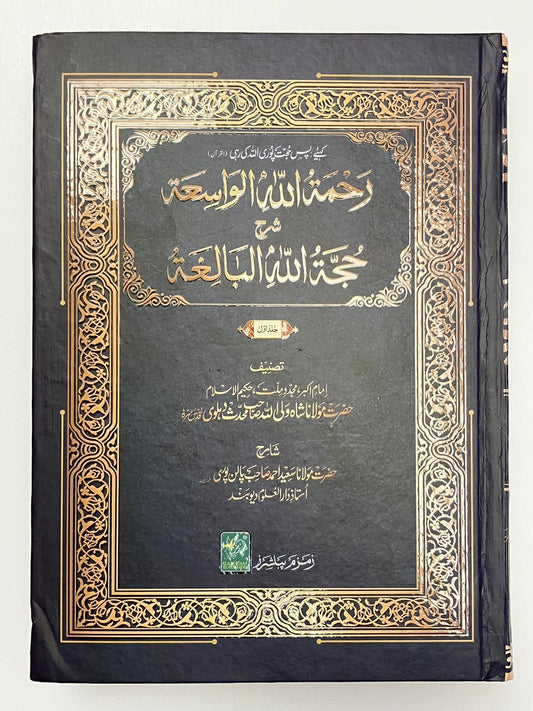 کہیے، پس حُجّت پُوری اللہ کی رہی (القرآن)
رَحْمَةُ اللهِ الْوَاسِعَة
شرح
حُجَّةُ اللهِ الْبَالِغَةُ
جلد اوّل
تصنیف
امام اکبر، مجدد ملت، حکیم الاسلام
حضرت مولانا شاہ ولی اللہ صاحب محدث دہلوی قدس سرہ
شارح
حضرت مولانا سعید احمد صاحب پالن پوری
اُستاذ دارالعلوم دیوبند
زمزم پبلشرز